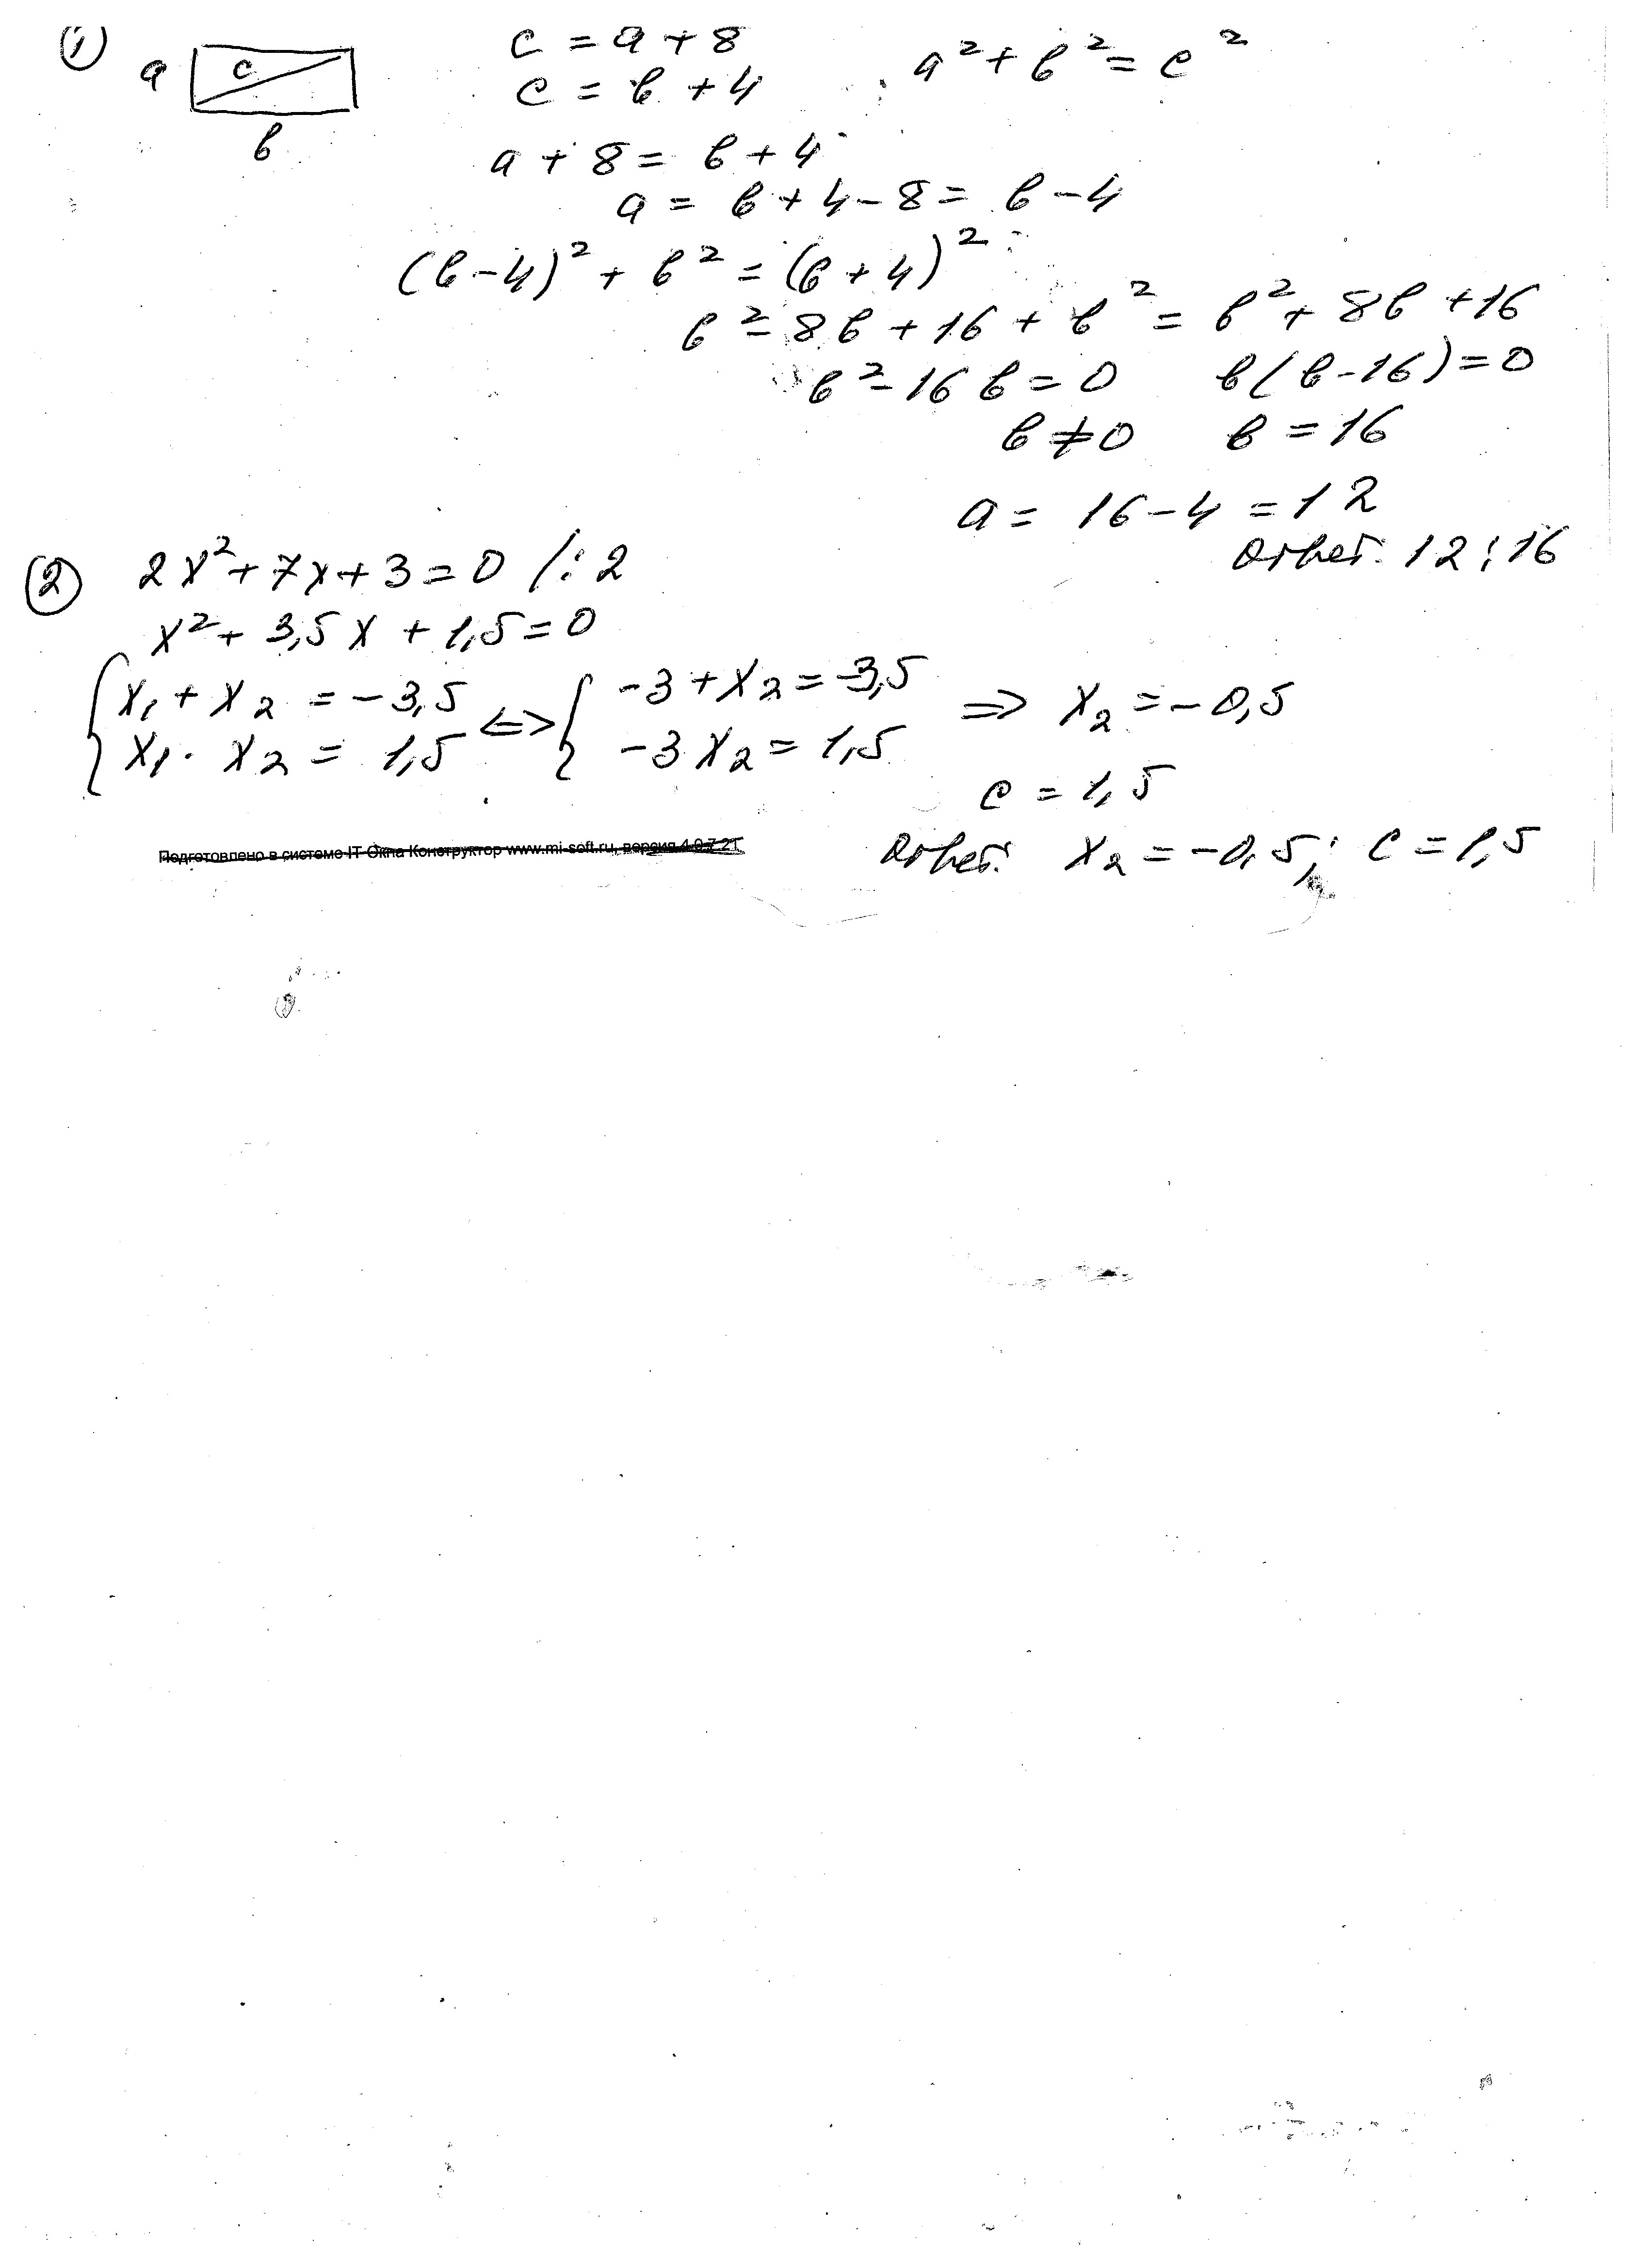 ① a c b c = a + 8 a² + b² = c²
c = b + 4
a + 8 = b + 4
a = b + 4 - 8 = b - 4
(b - 4)² + b² = (b + 4)²
b² - 8b + 16 + b² = b² + 8b + 16
b² - 16b = 0 b(b - 16) = 0
b ≠ 0 b = 16
a = 16 - 4 = 12
Ответ: 12; 16
② 2x² + 7x + 3 = 0 /: 2
x² + 3,5x + 1,5 = 0
{ x₁ + x₂ = -3,5 ⇔ { -3 + x₂ = -3,5 ⇒ x₂ = -0,5
x₁ · x₂ = 1,5 -3x₂ = 1,5
c = 1,5
Подготовлено в системе IT Окна Конструктор www.mi-soft.ru, версия 4.0.7.21
Ответ: x₂ = -0,5; c = 1,5